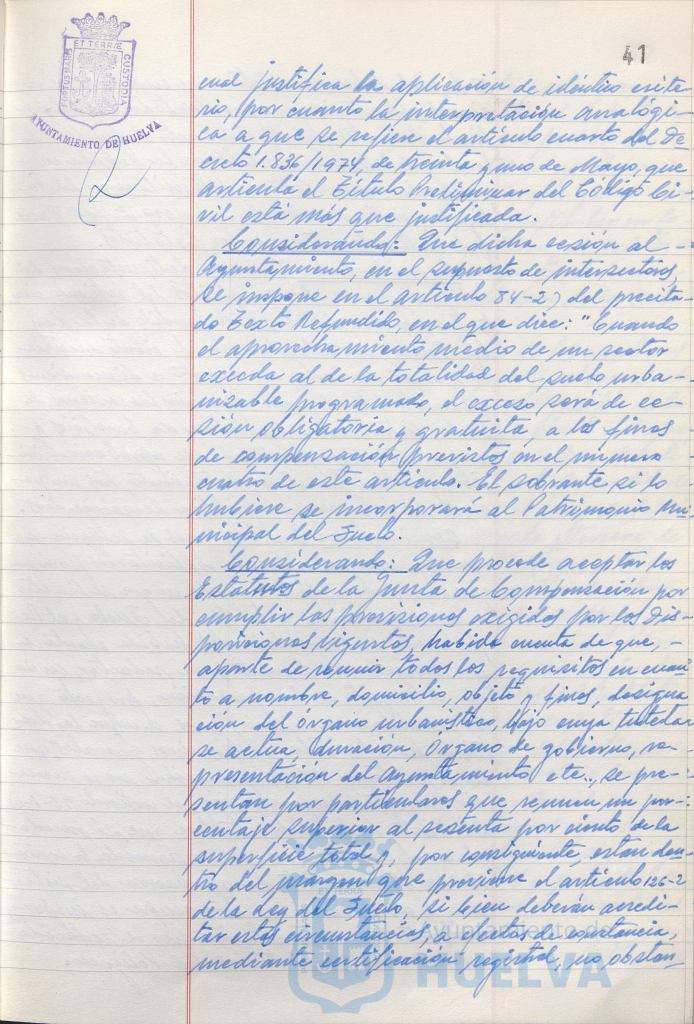 41
ET TERRÆ
CUSTODIA
PORTUS MARIS
AYUNTAMIENTO DE HUELVA
cual justifica la aplicación de idéntico crite-
rio, por cuanto la interpretación analógi-
ca a que se refiere el artículo cuarto del De-
creto 1.836/1974, de treinta y uno de Mayo, que
articula el Título Preliminar del Código Ci-
vil está más que justificada.
Considerando: Que dicha cesión al -
Ayuntamiento, en el supuesto de intersectores,
se impone en el artículo 84-2) del precita-
do Texto Refundido, en el que dice: "Cuando
el aprovechamiento medio de un sector
exceda al de la totalidad del suelo urba-
nizable programado, el exceso será de ce-
sión obligatoria y gratuita, a los fines
de compensación previstos en el número
cuatro de este artículo. El sobrante si lo
hubiere se incorporará al Patrimonio Mu-
nicipal del Suelo.
Considerando: Que procede aceptar los
Estatutos de la Junta de Compensación por
cumplir las previsiones exigidas por las Dis-
posiciones Vigentes, habida cuenta de que, -
aparte de reunir todos los requisitos en cuan-
to a nombre, domicilio, objeto y fines, designa-
ción del órgano urbanístico, bajo cuya tutela
se actua, duración, Órgano de gobierno, re-
presentación del Ayuntamiento etc.., se pre-
sentan por particulares que reunen un por-
centaje superior al sesenta por ciento de la
superficie total y, por consiguiente, estan den-
tro del margen que previene el artículo 126-2
de la Ley del Suelo, si bien deberán acredi-
tar estas circunstancias, a efectos de constancia,
mediante certificación registral, no obstan-
Ayuntamiento de
HUELVA